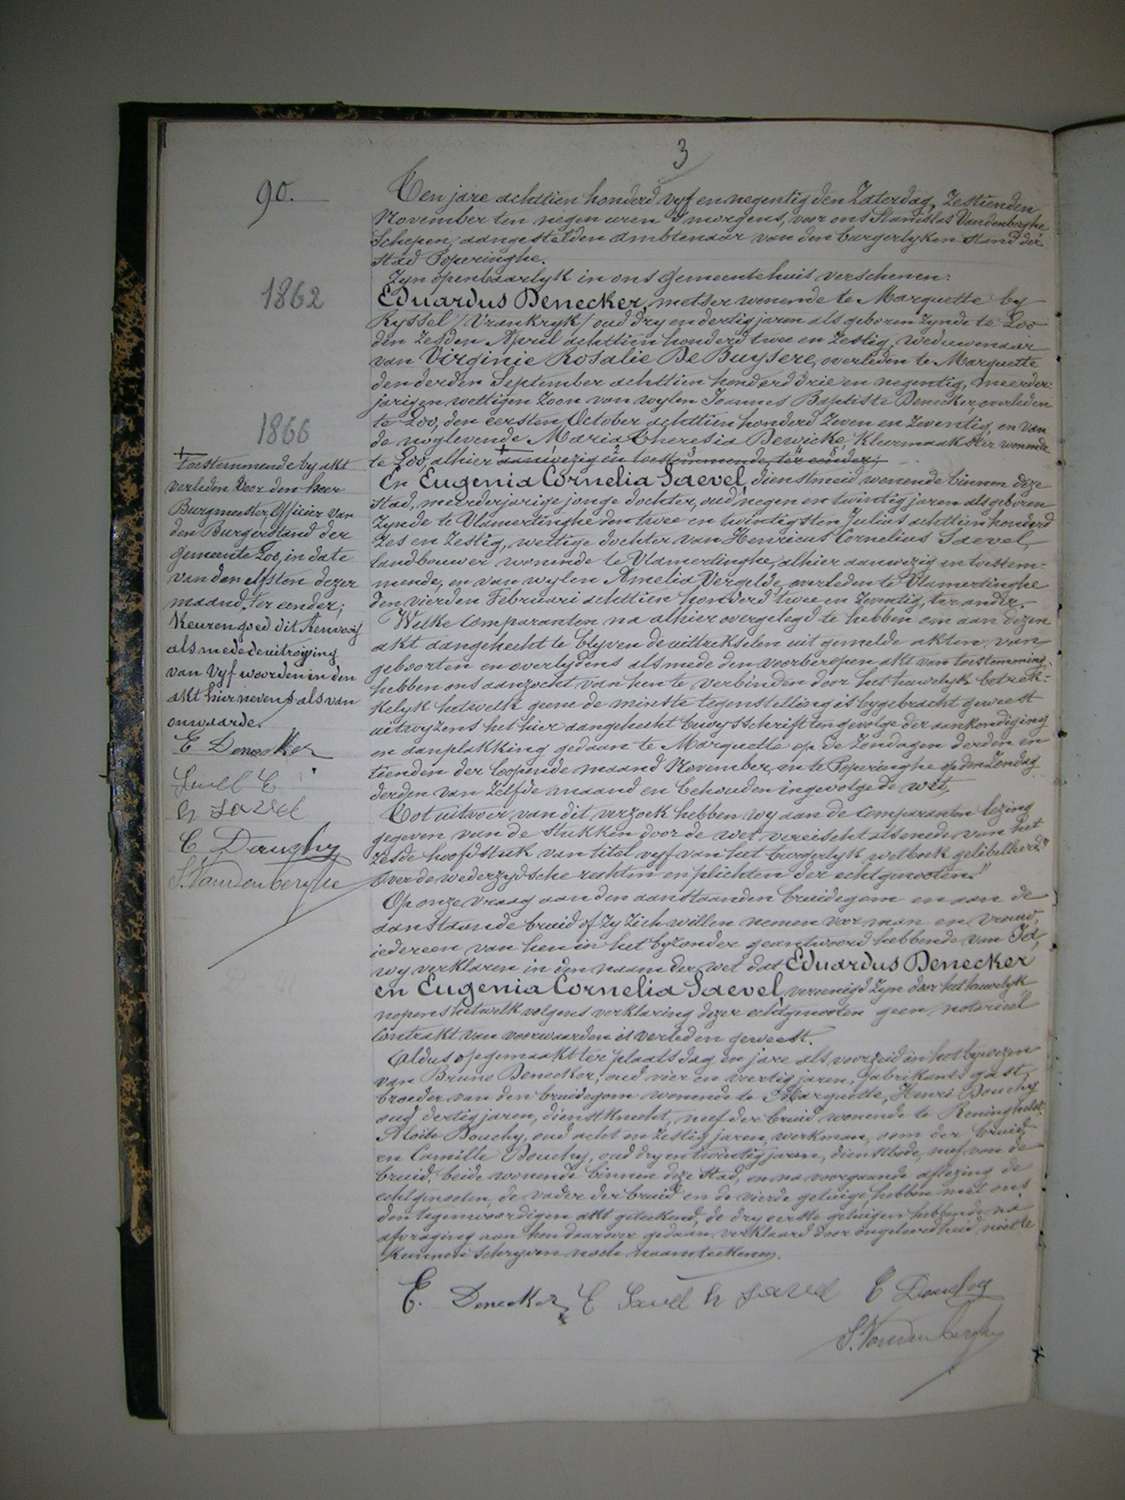 3
90.
Ten jare achttien honderd vyf en negentig den Zaterdag, Zestienden
November ten negen uren 's morgens, voor ons Stanislas Vandenberghe
Schepen, aangestelden ambtenaar van den burgerlyken stand der
stad Poperinghe.
Zyn openbaarlyk in ons gemeentehuis verschenen:
1862
Eduardus Denecker, metser wonende te Marquette by
Ryssel /Vrankryk/ oud dry en dertig jaren als geboren zynde te Loo
den zesden April achttien honderd twee en zestig, weduwenaar
van Virginie Rosalie De Buysere, overleden te Marquette
den derden September achttien honderd drie en negentig, meerder-
jarigen wettigen zoon van wylen Joannes Baptiste Denecker, overleden
te Loo, den eersten October achttien honderd zeven en zeventig, en van
de noglevende Maria Theresia Dewicke, kleermaakster wonende
te Loo, alhier aanwezig en toestemmende, ter eender;
1866
En Eugenia Cornelia Saevel, dienstmeid wonende binnen deze
stad, meerderjarige jonge dochter, oud negen en twintig jaren als geboren
zynde te Vlamertinghe den twee en twintigsten Julius achttien honderd
zes en zestig, wettige dochter van Henricus Cornelius Saevel,
landbouwer wonende te Vlamertinghe, alhier aanwezig en toestem-
mende, en van wylen Amelia Vergelde, overleden te Vlamertinghe
den vierden Februari achttien honderd twee en zeventig, ter ander.
Welke comparanten na alhier overgelegd te hebben om aan dezen
akt aangehecht te blyven de uittrekselen uit gemelde akten van
geboorten en overlydens alsmede den voorberoepen akt van toestemming,
hebben ons aanzocht van hen te verbinden door het huwelyk betrek-
kelyk hetwelk geene de minste tegenstelling is bygebracht geweest
uitwyzens het hier aangehecht bewysschrift en gevolge der aankondiging
en aanplakking gedaan te Marquette op de Zondagen derden en
tienden der loopende maand November, en te Poperinghe op den Zondag
derden van zelfde maand en behouden ingevolge de wet.
Tot uitvoer van dit verzoek hebben wy aan de comparanten lezing
gegeven van de stukken door de wet vereischt alsmede van het
zesde hoofdstuk van titel vyf van het burgerlyk wetboek gelibelleerd
"Over de wederzydsche rechten en plichten der echtgenooten."
Op onze vraag aan den aanstaanden bruidegom en aan de
aanstaande bruid of zy zich willen nemen voor man en vrouw,
iedereen van hen in het byzonder geantwoord hebbende van Ja,
wy verklaren in den naam der wet dat Eduardus Denecker
en Eugenia Cornelia Saevel, vereenigd zyn door het huwelyk
nopens hetwelk volgens verklaring dezer echtgenooten geen notarieel
contrakt van voorwaarden is verleden geweest.
Aldus opgemaakt ter plaats dag en jare als voorzeid in het bywezen
van Bruno Denecker, oud vier en veertig jaren, fabrikants gast,
broeder van den bruidegom wonende te Marquette, Henri Douchy
oud dertig jaren, dienstknecht, neef der bruid wonende te Reninghelst,
Aloïse Douchy, oud acht en zestig jaren, werkman, oom der bruid
en Camille Douchy, oud dry en twintig jaren, dienstbode, neef van de
bruid, beide wonende binnen deze stad, en na voorgaande aflezing de
echtgenooten, de vader der bruid en de vierde getuige hebben met ons
den tegenwoordigen akt geteekend, de dry eerste getuigen hebbende na
afvraging aan hen daarover gedaan, verklaard door ongeleerdheid niet te
kunnen schryven noch naamteekenen.
toestemmende by akt
verleden voor den heer
Burgmeester, Officier van
den Burgerstand der
gemeente Loo, in date
van den elfsten dezer
maand, ter eender;
Keuren goed dit Renvooi
alsmede de uitroeiing
van vyf woorden in den
akt hier nevens als van
onwaarde.
E Denecker
Savel E
h savel
C Douchy
S. Vandenberghe
E. Denecker E Savel h savel C Douchy
S. Vandenberghe